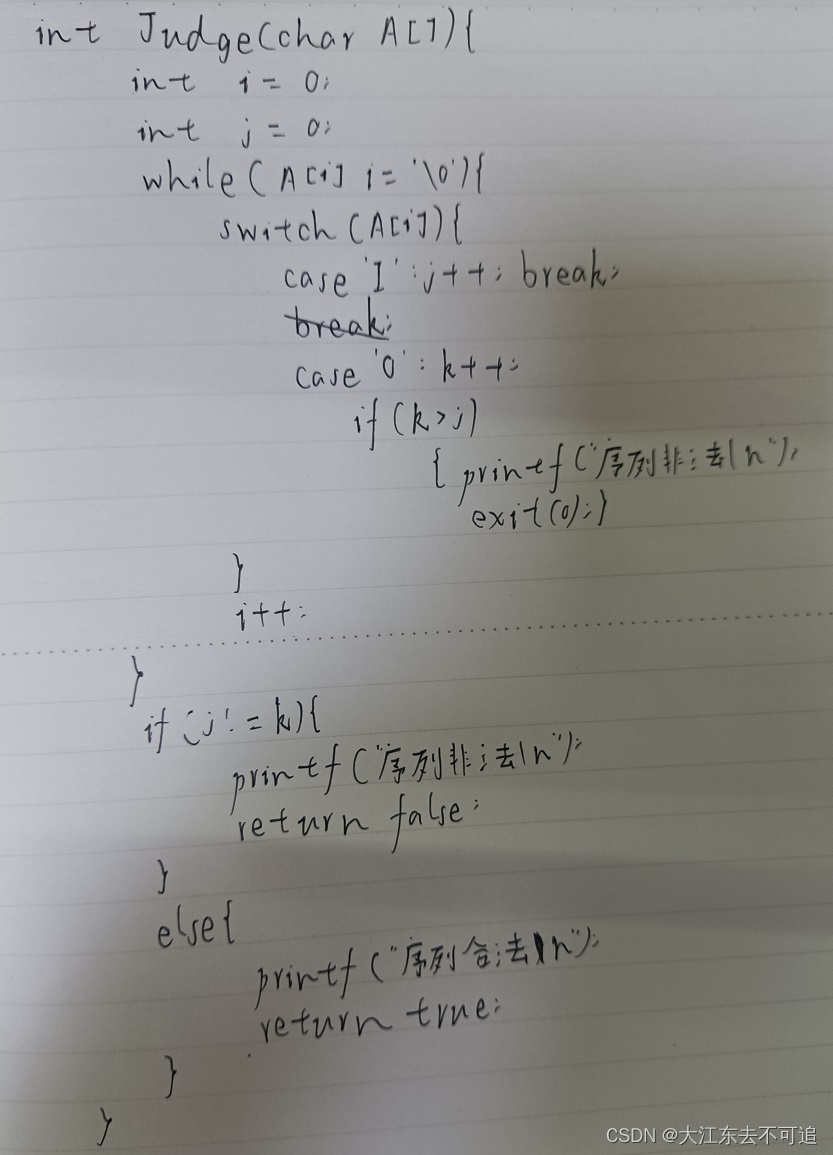 int Judge(char A[]){
int i = 0;
int j = 0;
while(A[i] != '\0'){
switch(A[i]){
case 'I': j++; break;
break;
case 'O': k++;
if(k>j)
{printf("序列非法\n");
exit(0);}
}
i++;
}
if(j!=k){
printf("序列非法\n");
return false;
}
else{
printf("序列合法\n");
return true;
}
}
CSDN @大江东去不可追